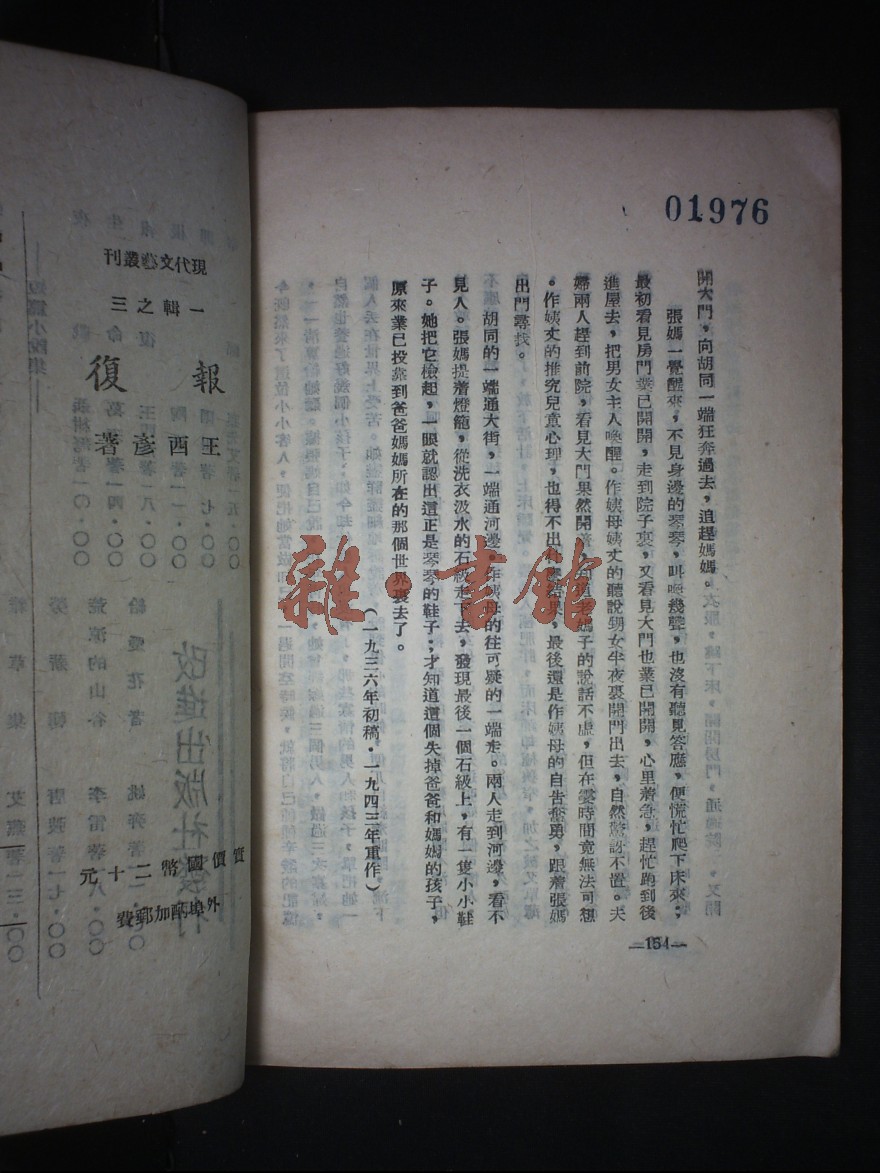 01976
開大門，向胡同一端狂奔過去，追趕媽媽。
張媽一覺醒來，不見身邊的琴琴，叫喚幾聲，也沒有聽見答應，便慌忙爬下床來；
最初看見房門業已開開，走到院子裏，又看見大門也業已開開，心里着急，趕忙跑到後
進屋去，把男女主人喚醒。作姨母姨丈的聽說甥女半夜裏開門出去，自然驚訝不置。夫
婦兩人趕到前院，看見大門果然開着，知道老媽子的說話不虛，但在霎時間竟無法可想
。作姨丈的推究兒童心理，也得不出什麼結果，最後還是作姨母的自告奮勇，跟着張媽
出門尋找。
胡同的一端通大街，一端通河邊。作姨母的往可疑的一端走。兩人走到河邊，看不
見人。張媽提着燈籠，從洗衣汲水的石級走下去，發現最後一個石級上，有一隻小小鞋
子。她把它檢起，一眼就認出這正是琴琴的鞋子；才知道這個失掉爸爸和媽媽的孩子，
原來業已投靠到爸爸媽媽所在的那個世界裏去了。
（一九三六年初稿・一九四三年重作）
—154—
現代文藝叢刊
一輯之三
報復
王西彥著
改進出版社發行
實價國幣二十元
外埠酌加郵費
雜·書館